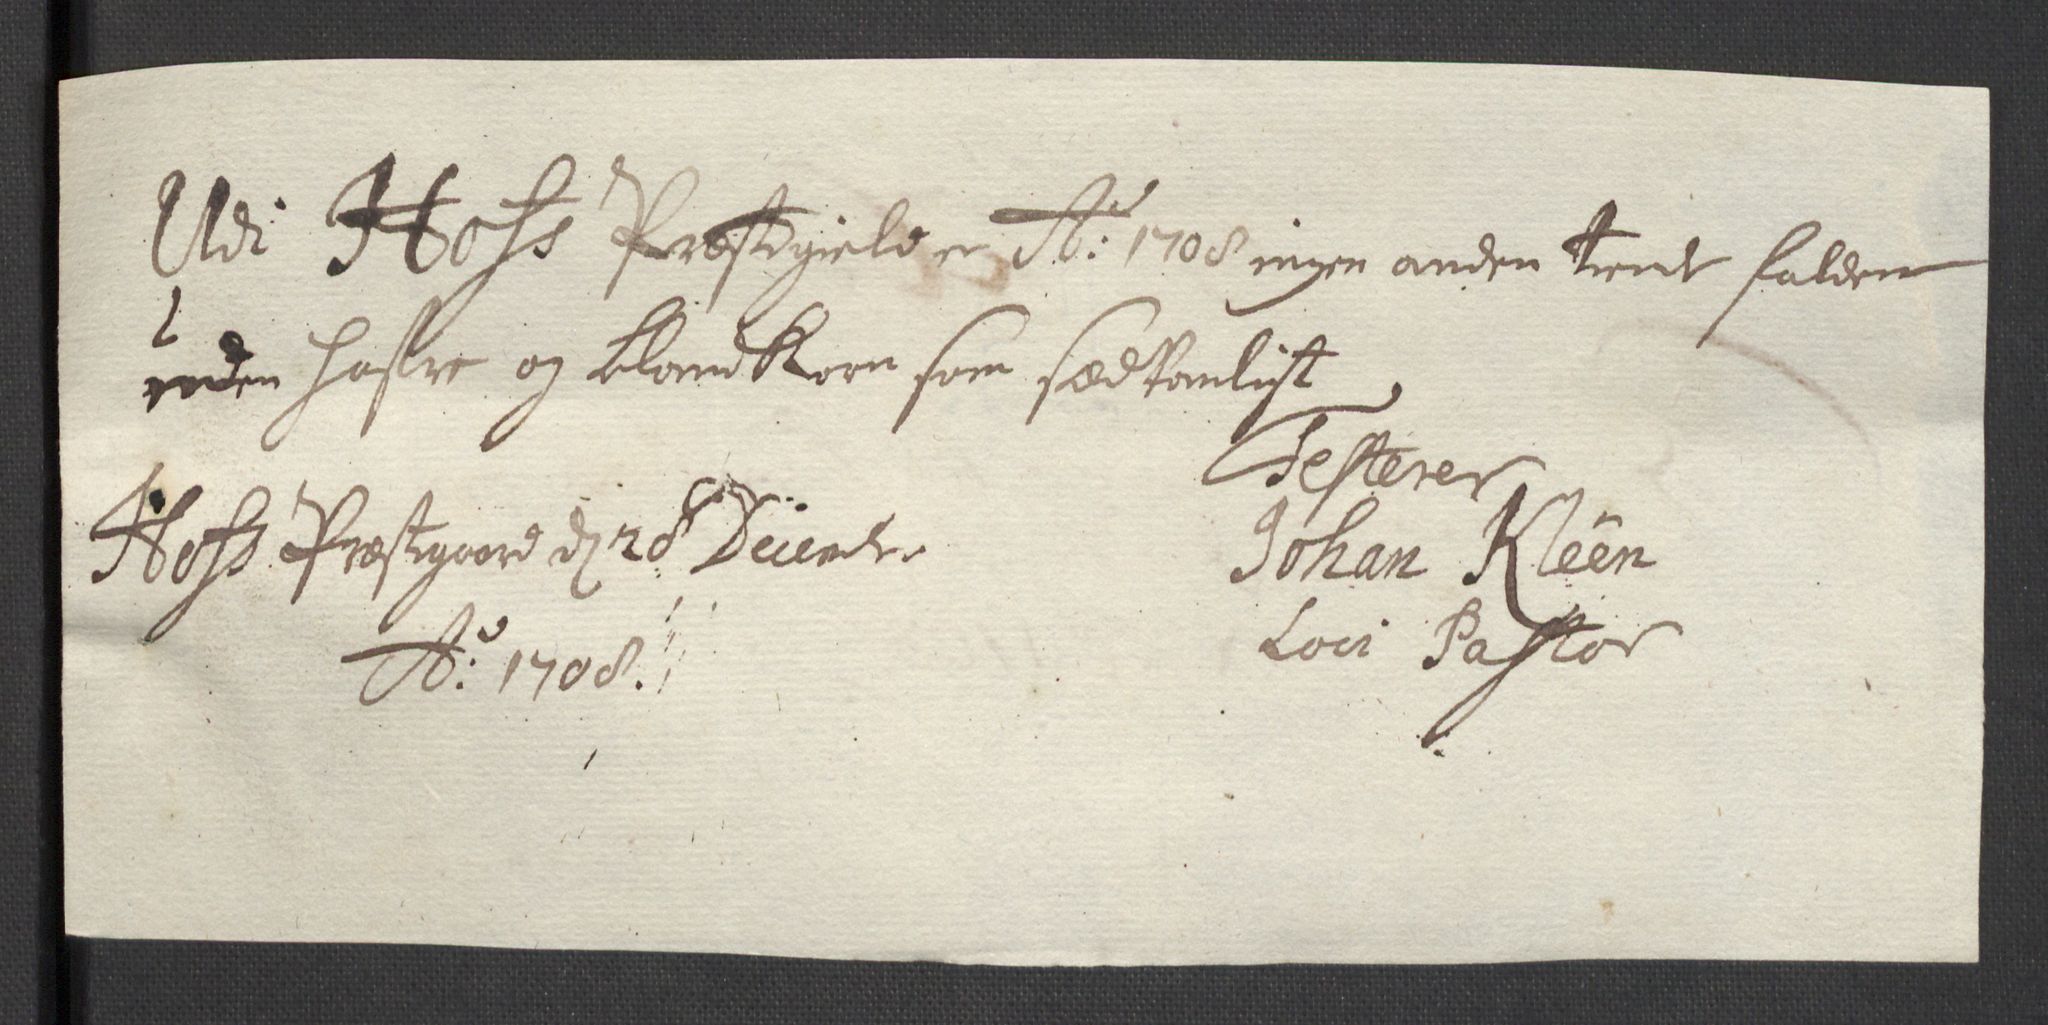 Udi Hofs Præstegield er Ao: 1708 ingen anden tiende falden
enden hafre og blandKorn som sædvanligt
Testerer
Hofs Præstegaard d 28 Decembr
Johan Kleen
Ao: 1708.
Loci Pastor